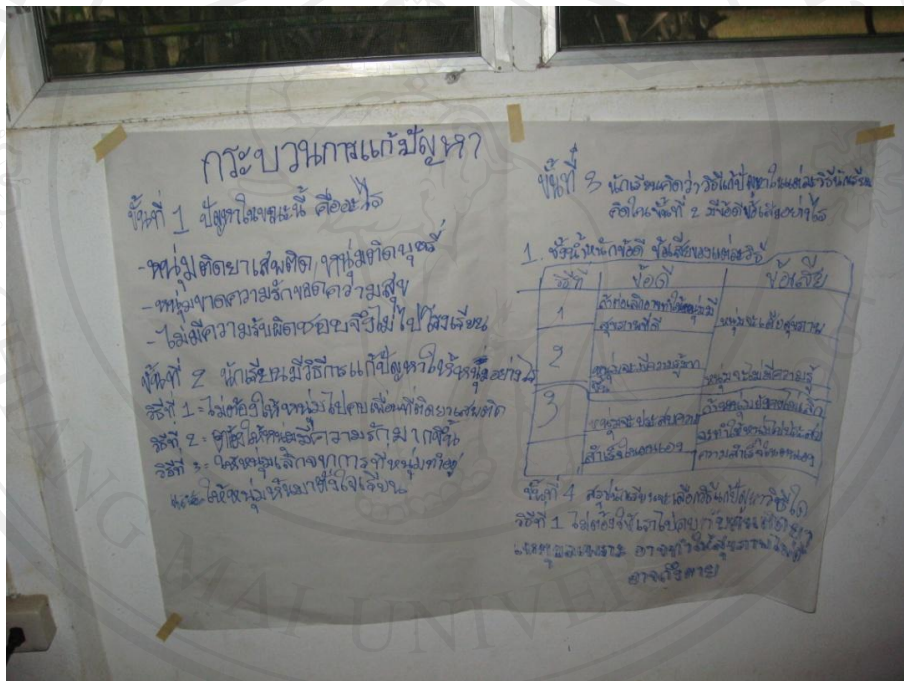 กระบวนการแก้ปัญหา
ขั้นที่ 1 ปัญหาในขณะนี้ คืออะไร
-หนุ่มติดยาเสพติด, หนุ่มติดบุหรี่
-หนุ่มขาดความรักขาดความสุข
-ไม่มีความรับผิดชอบจึงไม่ไปโรงเรียน
ขั้นที่ 2 นักเรียนมีวิธีการแก้ปัญหาให้หนุ่มอย่างไร
วิธีที่ 1 = ไม่ต้องให้หนุ่มไปคบเพื่อนที่ติดยาเสพติด
วิธีที่ 2 = ให้หนุ่มมีความรักมากขึ้น
วิธีที่ 3 = ให้หนุ่มเลิกจากการที่หนุ่มทำอยู่
และให้หนุ่มหันมาตั้งใจเรียน
ขั้นที่ 3 นักเรียนคิดว่าวิธีแก้ปัญหาในแต่ละวิธีนักเรียน
คิดในขั้นที่ 2 มีข้อดีข้อเสียอย่างไร
1. ชั่งน้ำหนักข้อดี ข้อเสียของแต่ละวิธี
วิธีที่ ข้อดี ข้อเสีย
1 หนุ่มมี
สุขภาพที่ดี หนุ่มจะเสียสุขภาพ
2 หนุ่มจะมีความรู้มาก
ขึ้น หนุ่มจะไม่มีความรู้
3 หนุ่มจะประสบความ
สำเร็จของตนเอง ถ้าหนุ่มยังคงไม่เลิก
จะทำให้หนุ่มไม่ประสบ
ความสำเร็จของตนเอง
ขั้นที่ 4 สรุปนักเรียนจะเลือกวิธีแก้ปัญหาวิธีใด
วิธีที่ 1 ไม่ต้องให้เราไปคบกับคนติดยา
เหตุผลเพราะ อาจทำให้สุขภาพไม่ดี
อาจถึงตาย